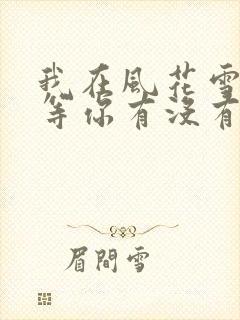 我在風花雪
等你有沒有
眉間雪